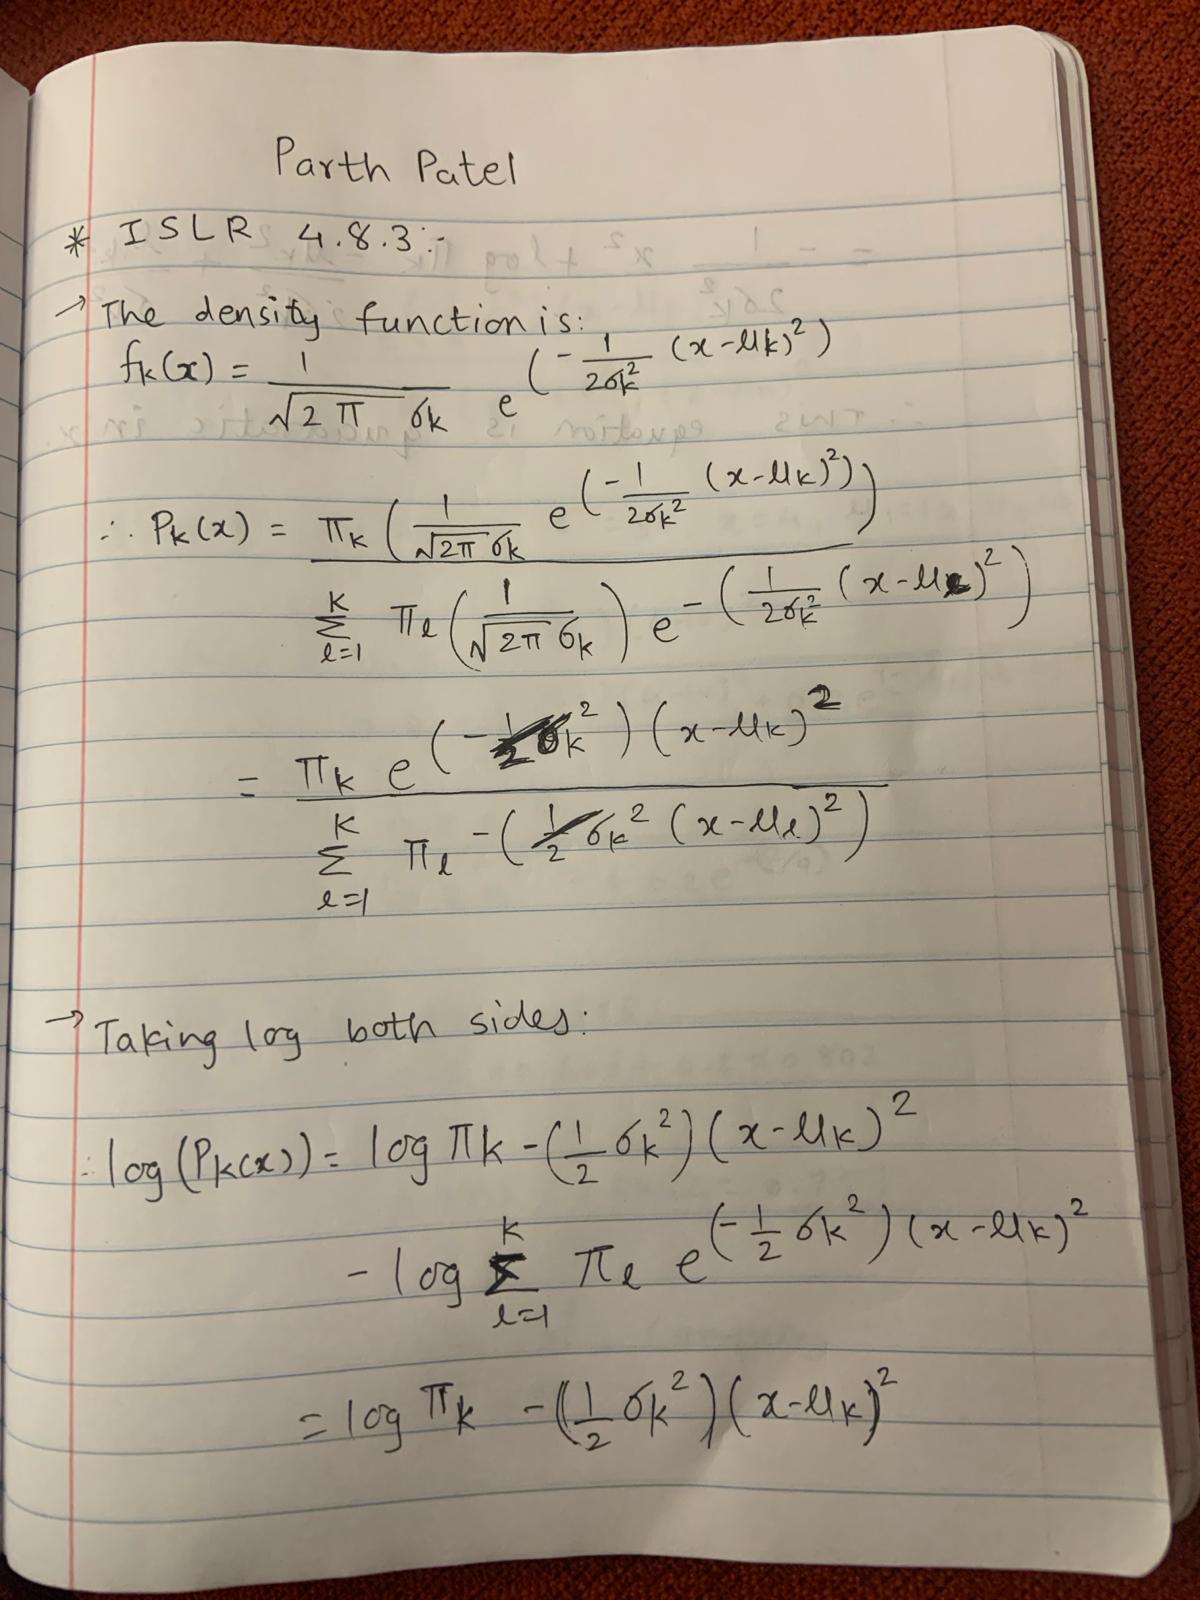 Parth Patel
* ISLR 4.8.3:-
→ The density function is:
fk(x) = 1/(√2π σk) e^(-1/2σk² (x-μk)²)
∴ Pk(x) = πk (1/(√2π σk) e^(-1/2σk² (x-μk)²))
Σ_{l=1}^{K} πl (1/(√2π σk)) e^-(1/2σk² (x-μl)²)
= πk e^(-1/2 σk²)(x-μk)²
Σ_{l=1}^{K} πl -(1/2 σk² (x-μl)²)
→ Taking log both sides:
∴ log(Pk(x)) = log πk - (1/2 σk²)(x-μk)²
- log Σ_{l=1}^{K} πl e^(-1/2 σk²)(x-μk)²
= log πk - (1/2 σk²)(x-μk)²